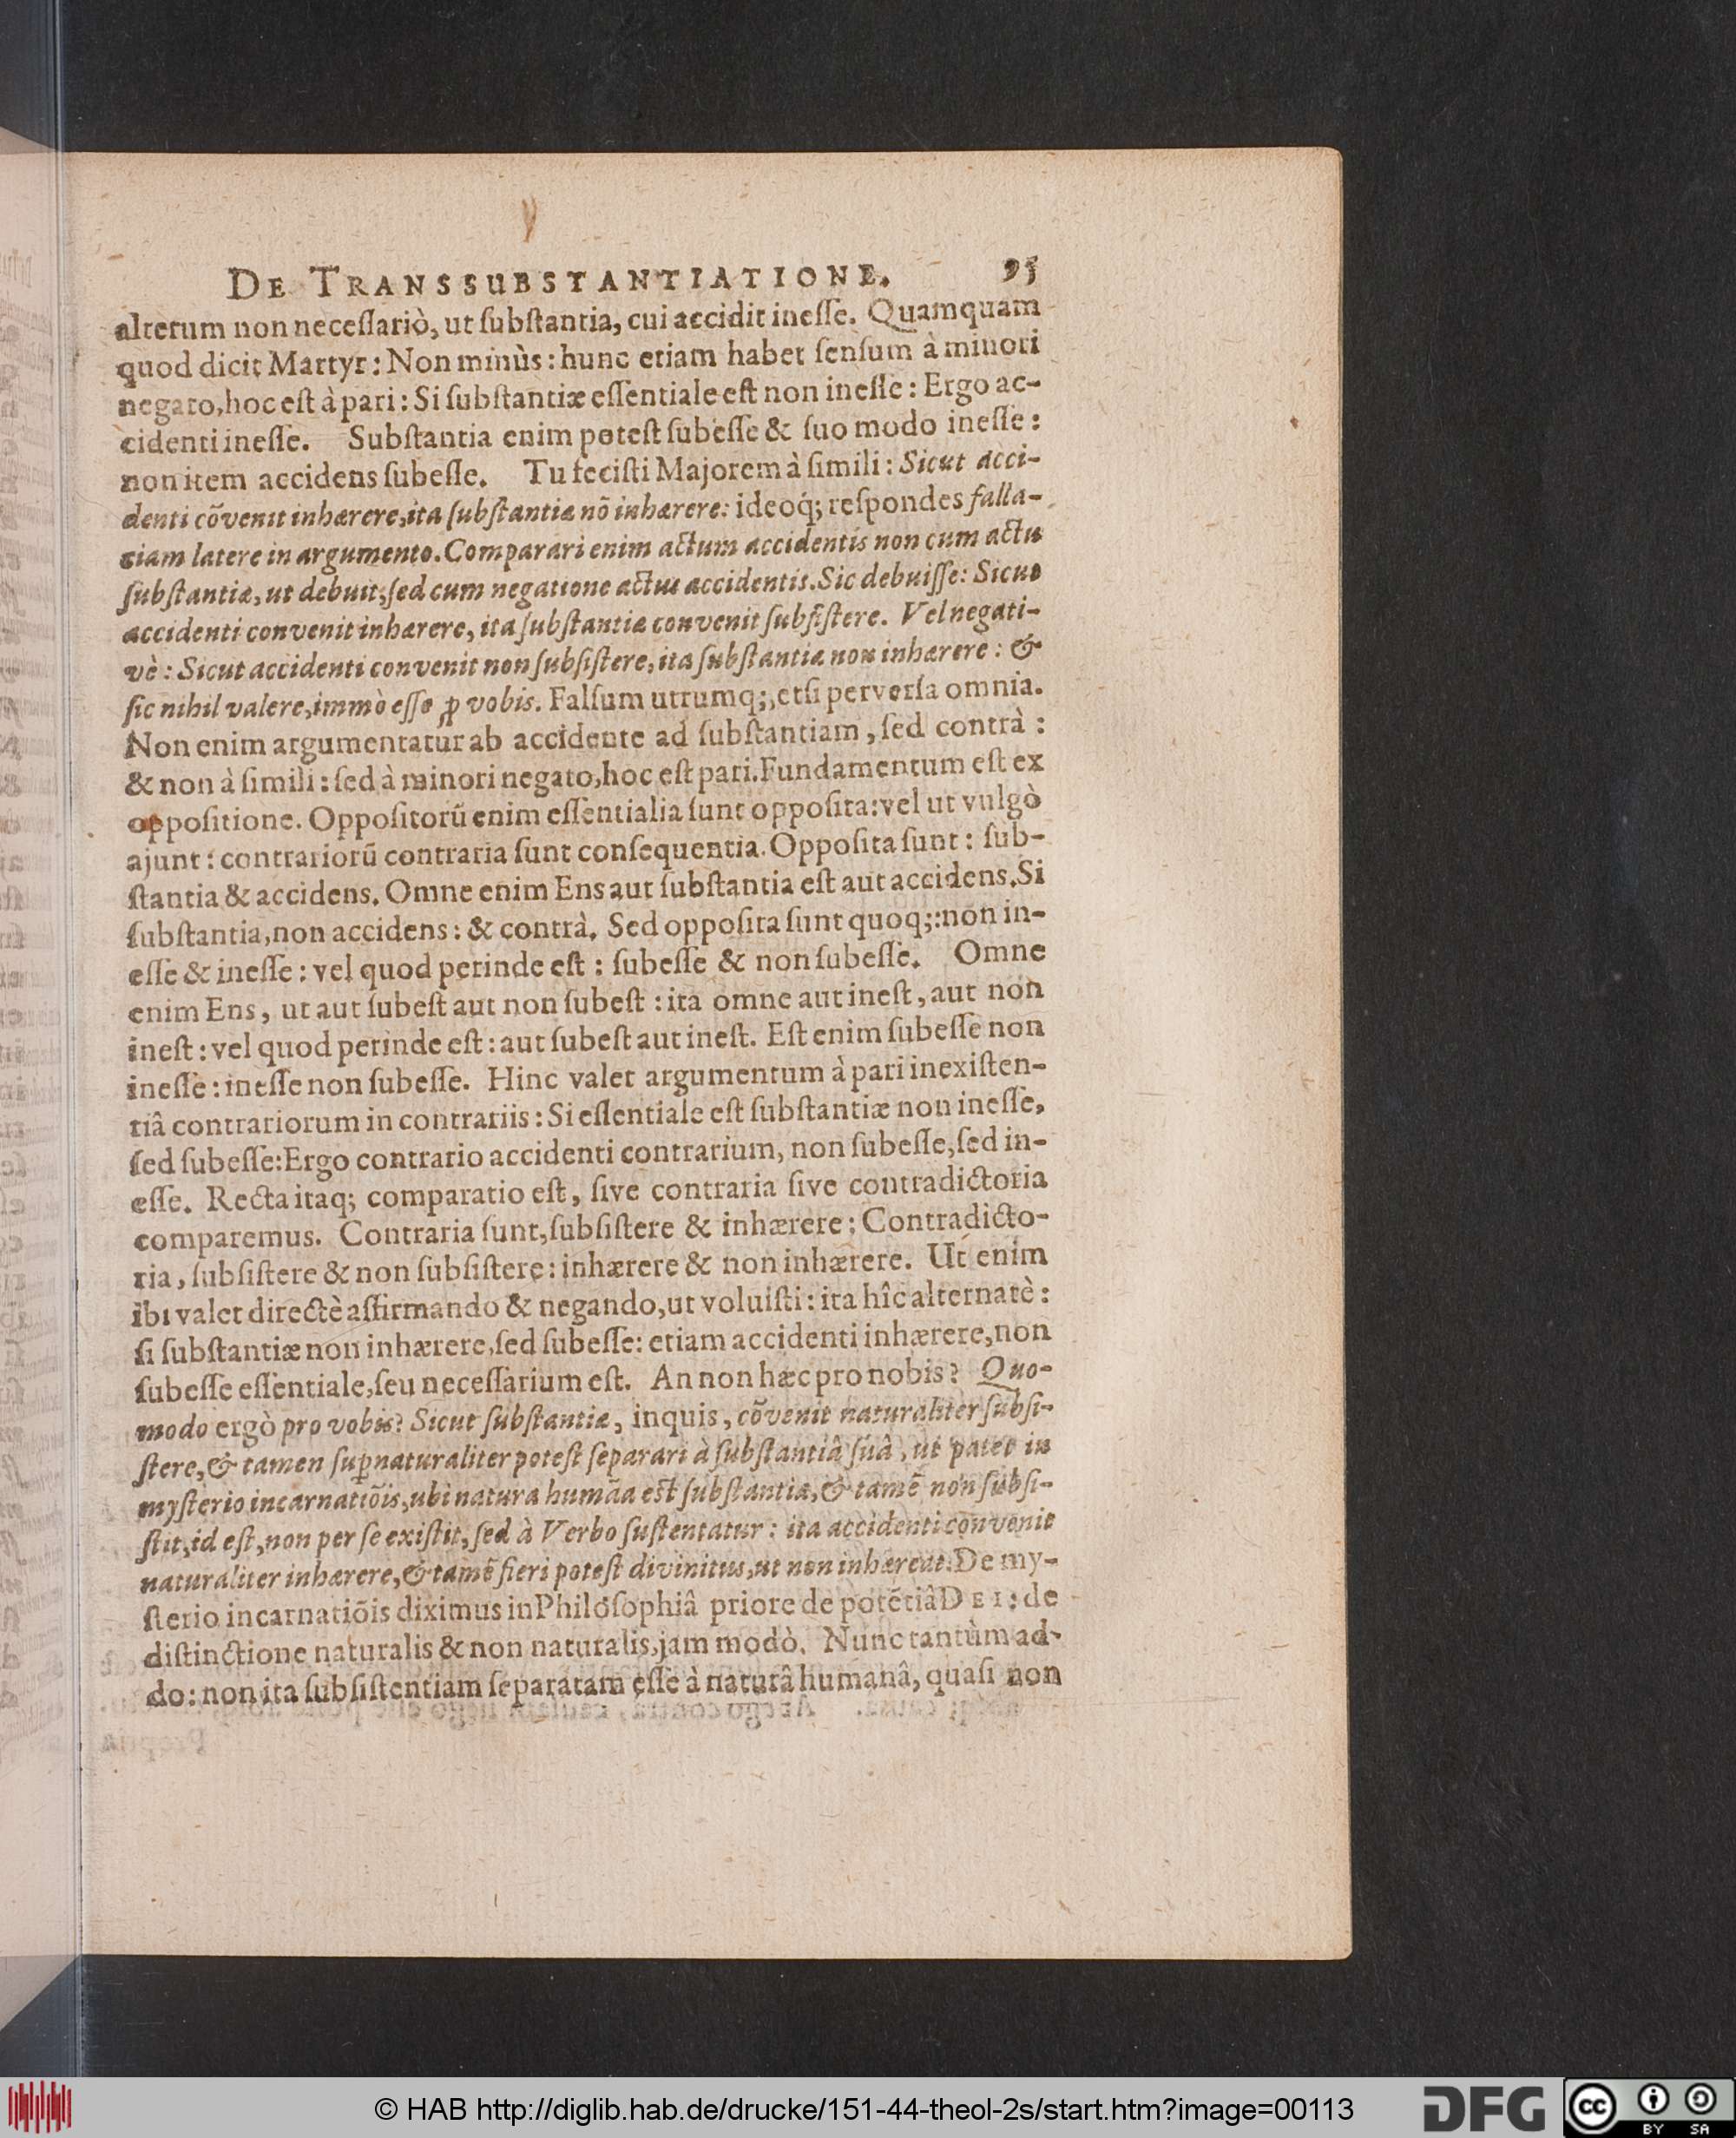 DE TRANSSUBSTANTIATIONE. 95
alterum non neceſſariò, ut ſubſtantia, cui accidit ineſſe. Quamquam
quod dicit Martyr: Non minùs: hunc etiam habet ſenſum à minori
negato, hoc eſt à pari: Si ſubſtantiæ eſſentiale eſt non ineſſe: Ergo ac-
cidenti ineſſe. Subſtantia enim poteſt ſubeſſe & ſuo modo ineſſe:
non item accidens ſubeſſe. Tu feciſti Majorem à ſimili: Sicut acci-
denti cõvenit inhærere, ita ſubſtantiæ nõ inhærere: ideoq́; reſpondes falla-
ciam latere in argumento. Comparari enim actum accidentis non cum actu
ſubſtantiæ, ut debuit; ſed cum negatione actus accidentis. Sic debuiſſe: Sicut
accidenti convenit inhærere, ita ſubſtantiæ convenit ſubſiſtere. Vel negati-
vè: Sicut accidenti convenit non ſubſiſtere, ita ſubſtantiæ non inhærere: &
ſic nihil valere, immò eſſe ꝓ vobis. Falſum utrumq;, etſi perverſa omnia.
Non enim argumentatur ab accidente ad ſubſtantiam, ſed contrà:
& non à ſimili: ſed à minori negato, hoc eſt pari. Fundamentum eſt ex
oppoſitione. Oppoſitorũ enim eſſentialia ſunt oppoſita: vel ut vulgò
ajunt: contrariorũ contraria ſunt conſequentia. Oppoſita ſunt: ſub-
ſtantia & accidens. Omne enim Ens aut ſubſtantia eſt aut accidens. Si
ſubſtantia, non accidens: & contrà. Sed oppoſita ſunt quoq;: non in-
eſſe & ineſſe: vel quod perinde eſt: ſubeſſe & non ſubeſſe. Omne
enim Ens, ut aut ſubeſt aut non ſubeſt: ita omne aut ineſt, aut non
ineſt: vel quod perinde eſt: aut ſubeſt aut ineſt. Eſt enim ſubeſſe non
ineſſe: ineſſe non ſubeſſe. Hinc valet argumentum à pari inexiſten-
tiâ contrariorum in contrariis: Si eſſentiale eſt ſubſtantiæ non ineſſe,
ſed ſubeſſe: Ergo contrario accidenti contrarium, non ſubeſſe, ſed in-
eſſe. Recta itaq; comparatio eſt, ſive contraria ſive contradictoria
comparemus. Contraria ſunt, ſubſiſtere & inhærere: Contradicto-
ria, ſubſiſtere & non ſubſiſtere: inhærere & non inhærere. Ut enim
ibi valet directè affirmando & negando, ut voluiſti: ita hîc alternatè:
ſi ſubſtantiæ non inhærere, ſed ſubeſſe: etiam accidenti inhærere, non
ſubeſſe eſſentiale, ſeu neceſſarium eſt. An non hæc pro nobis? Quo-
modo ergò pro vobis? Sicut ſubſtantiæ, inquis, cõvenit naturaliter ſubſi-
ſtere, & tamen ſuꝑnaturaliter poteſt ſeparari à ſubſtantiâ ſuâ, ut patet in
myſterio incarnatiõis, ubi natura humãa eſt ſubſtantia, & tamẽ non ſubſi-
ſtit, id eſt, non per ſe exiſtit, ſed à Verbo ſuſtentatur: ita accidenti convenit
naturaliter inhærere, & tamẽ fieri poteſt divinitus, ut non inhæreat. De my-
ſterio incarnatiõis diximus in Philoſophiâ priore de potẽtiâ DEI: de
diſtinctione naturalis & non naturalis, jam modò. Nunc tantùm ad-
do: non ita ſubſiſtentiam ſeparatam eſſe à naturâ humanâ, quaſi non
© HAB http://diglib.hab.de/drucke/151-44-theol-2s/start.htm?image=00113
DFG
cc BY SA